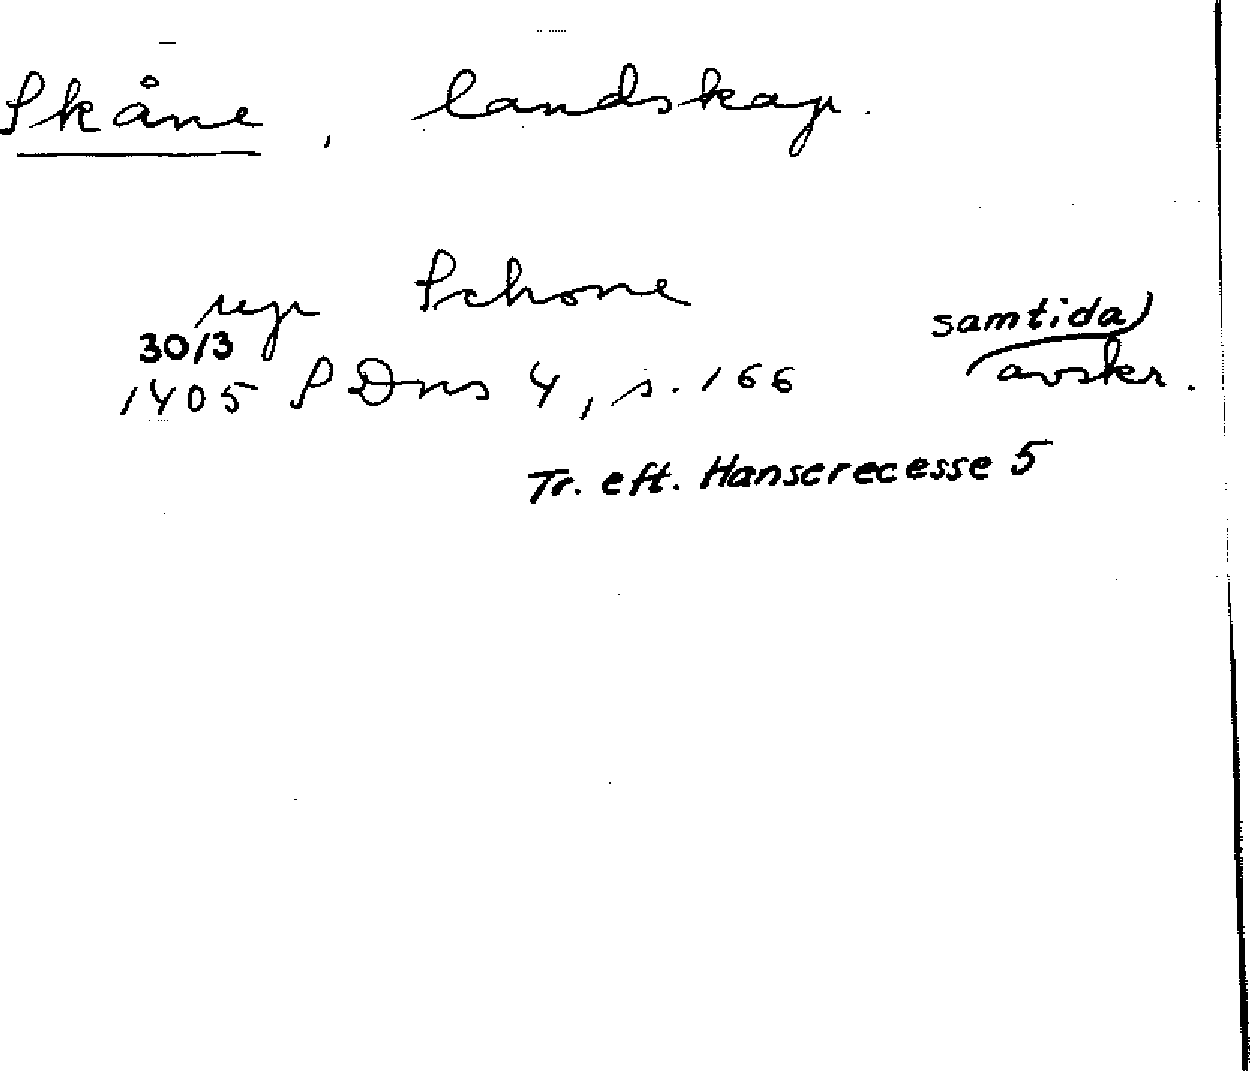 Skåne, landskap.
up Schone
samtida
30/3
1405 SDns 4, s. 166 avskr.
Tr. eft. Hanserecesse 5